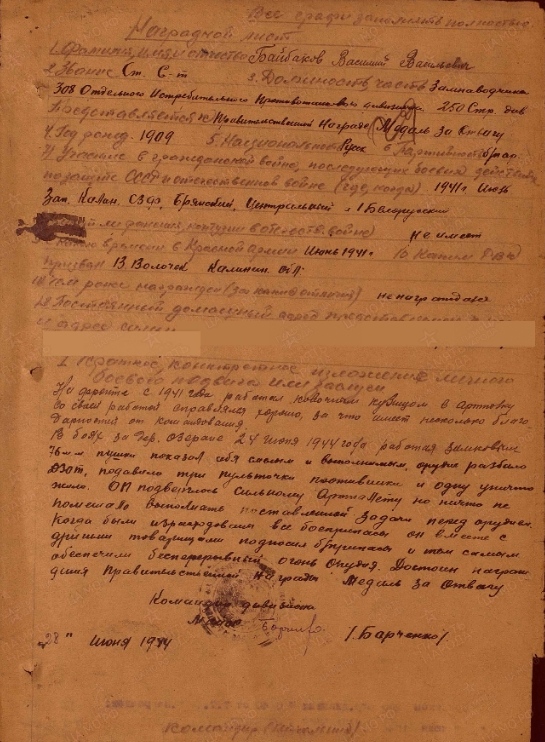 Все графы заполнить полностью
Наградной лист
1. Фамилия, имя и отчество Байбаков Василий Васильевич
2. Звание Ст. С-т 3. Должность часть Зам. наводчика
308 Отдельного Истребительного Противотанкового дивизиона 250 Стр. див
Представляется к Правительственной Награде Медаль За Отвагу
4. Год рожд. 1909 5. Национальность Русск 6. Партийность
7) Участие в гражданской войне, последующих боевых действиях
по защите СССР и отечественной войне (где, когда) 1941 г Июль
Зап. Калин, СЗФ, Брянский, Центральный и 1 Белорусский
ранений и контузии в отечеств. войне) не имеет
времени в Красной армии Июнь 1941 г. 10 Каким РВК
призван В Волочек Калинин обл.
Чем ранее награжден (за какие отличия) не награждался
Постоянный домашний адрес представляемого
и адрес семьи
I Краткое, конкретное изложение личного
боевого подвига или заслуги
На фронте с 1941 года работал ковочным кузнецом в артполку
со своей работой справлялся хорошо, за что имеет несколько благо
дарностей от командования.
В боях за дер. Озеране 24 июня 1944 года работая замковым
76 мм пушки показал себя смелым и орудие разбило
ДЗОТ, подавило три пульточки противника и одну уничто
жило. ОП подверглось сильному Артналёту но ничто не
помешало выполнить поставленной задачи перед орудием.
Когда были израсходованы все боеприпасы он вместе с
другими товарищами подносил б/припасы и тем самым
обеспечили беспрерывный огонь Орудия. Достоин награж
дения Правительственной Награды Медаль За Отвагу
Командир дивизиона
/Барченко/
"28" Июня 1944
Командир (начальник)